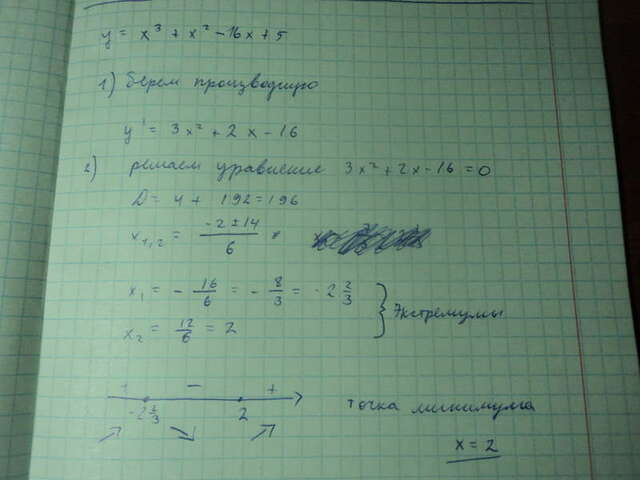 y = x³ + x² - 16x + 5
1) берем производную
y' = 3x² + 2x - 16
2) решаем уравнение 3x² + 2x - 16 = 0
D = 4 + 192 = 196
x₁,₂ = (-2 ± 14)/6
x₁ = - 16/6 = - 8/3 = -2 2/3
x₂ = 12/6 = 2
} Экстремумы
+ - +
-2 2/3 2
точка минимума
x = 2